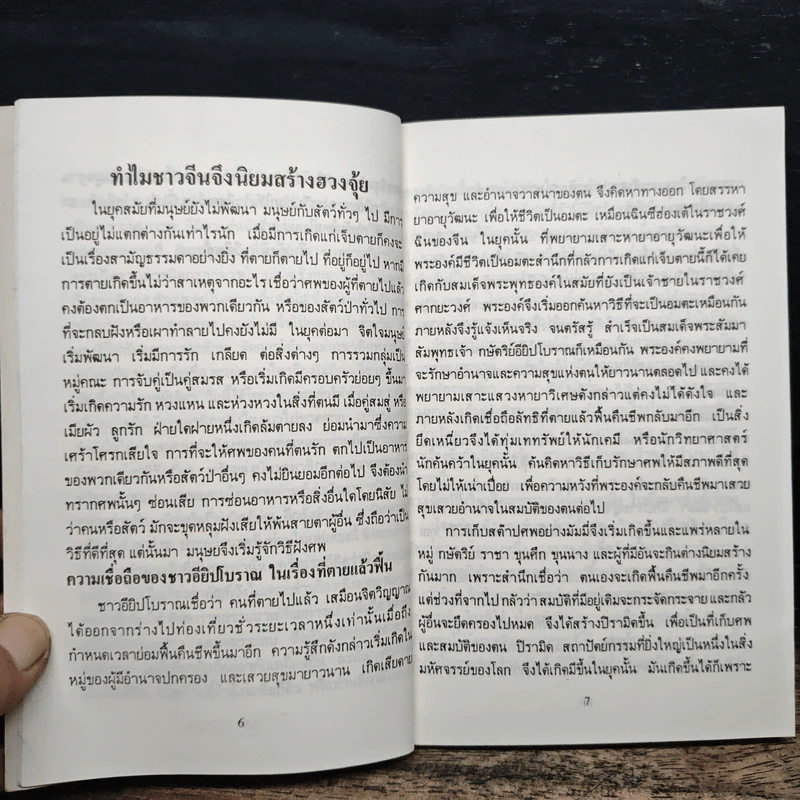 ทำไมชาวจีนจึงนิยมสร้างฮวงจุ้ย
ในยุคสมัยที่มนุษย์ยังไม่พัฒนา มนุษย์กับสัตว์ทั่วๆ ไป มีการ
เป็นอยู่ไม่แตกต่างกันเท่าไรนัก เมื่อมีการเกิดแก่เจ็บตายก็คงจะ
เป็นเรื่องสามัญธรรมดาอย่างยิ่ง ที่ตายก็ตายไป ที่อยู่ก็อยู่ไป หากมี
การตายเกิดขึ้นไม่ว่าสาเหตุจากอะไร เชื่อว่าศพของผู้ที่ตายไปแล้ว
คงต้องตกเป็นอาหารของพวกเดียวกัน หรือของสัตว์ป่าทั่วไป การ
ที่จะกลบฝังหรือเผาทำลายไปคงยังไม่มี ในยุคต่อมา จิตใจมนุษย์
เริ่มพัฒนา เริ่มมีการรัก เกลียด ต่อสิ่งต่างๆ การรวมกลุ่มเป็น
หมู่คณะ การจับคู่เป็นคู่สมรส หรือเริ่มเกิดมีครอบครัวย่อยๆ ขึ้นมา
เริ่มเกิดความรัก หวงแหน และห่วงหวงในสิ่งที่ตนมี เมื่อคู่สมสู่ หรือ
เมียผัว ลูกรัก ฝ่ายใดฝ่ายหนึ่งเกิดล้มตายลง ย่อมนำมาซึ่งความ
เศร้าโศรกเสียใจ การที่จะให้ศพของคนที่ตนรัก ตกไปเป็นอาหาร
ของพวกเดียวกันหรือสัตว์ป่าอื่นๆ คงไม่ยินยอมอีกต่อไป จึงต้องนำ
ทรากศพนั้นๆ ซ่อนเสีย การซ่อนอาหารหรือสิ่งอื่นใดโดยนิสัย ไม่
ว่าคนหรือสัตว์ มักจะขุดหลุมฝังเสียให้พ้นสายตาผู้อื่น ซึ่งถือว่าเป็น
วิธีที่ดีที่สุด แต่นั้นมา มนุษย์จึงเริ่มรู้จักวิธีฝังศพ
ความเชื่อถือของชาวอียิปโบราณ ในเรื่องที่ตายแล้วฟื้น
ชาวอียิปโบราณเชื่อว่า คนที่ตายไปแล้ว เสมือนจิตวิญญาณ
ได้ออกจากร่างไปท่องเที่ยวชั่วระยะเวลาหนึ่งเท่านั้นเมื่อถึง
กำหนดเวลาย่อมฟื้นคืนชีพขึ้นมาอีก ความรู้สึกดังกล่าวเริ่มเกิดใน
หมู่ของผู้มีอำนาจปกครอง และเสวยสุขมายาวนาน เกิดเสียดาย
6
ความสุข และอำนาจวาสนาของตน จึงคิดหาทางออก โดยสรรหา
ยาอายุวัฒนะ เพื่อให้ชีวิตเป็นอมตะ เหมือนฉินซีฮ่องเต้ในราชวงศ์
ฉินของจีน ในยุคนั้น ที่พยายามเสาะหายาอายุวัฒนะเพื่อให้
พระองค์มีชีวิตเป็นอมตะสำนึกที่กลัวการเกิดแก่เจ็บตายนี้ก็ได้เคย
เกิดกับสมเด็จพระพุทธองค์ในสมัยที่ยังเป็นเจ้าชายในราชวงศ์
ศากยะวงศ์ พระองค์จึงเริ่มออกค้นหาวิธีที่จะเป็นอมตะเหมือนกัน
ภายหลังจึงรู้แจ้งเห็นจริง จนตรัสรู้ สำเร็จเป็นสมเด็จพระสัมมา
สัมพุทธเจ้า กษัตริย์อียิปโบราณก็เหมือนกัน พระองค์คงพยายามที่
จะรักษาอำนาจและความสุขแห่งตนให้ยาวนานตลอดไป และคงได้
พยายามเสาะแสวงหายาวิเศษดังกล่าวแต่คงไม่ได้ดังใจ และ
ภายหลังเกิดเชื่อถือลัทธิที่ตายแล้วฟื้นคืนชีพกลับมาอีก เป็นสิ่ง
ยึดเหนี่ยวจึงได้ทุ่มเทททรัพย์ให้นักเคมี หรือนักวิทยาศาสตร์
นักค้นคว้าในยุคนั้น ค้นคิดหาวิธีเก็บรักษาศพให้มีสภาพดีที่สุด
โดยไม่ให้เน่าเปื่อย เพื่อความหวังที่พระองค์จะกลับคืนชีพมาเสวย
สุขเสวยอำนาจในสมบัติของตนต่อไป
การเก็บสต๊าปศพอย่างมัมมี่จึงเริ่มเกิดขึ้นและแพร่หลายใน
หมู่ กษัตริย์ ราชา ขุนศึก ขุนนาง และผู้ที่มีอันจะกินต่างนิยมสร้าง
กันมาก เพราะสำนึกเชื่อว่า ตนเองจะเกิดฟื้นคืนชีพมาอีกครั้ง
แต่ช่วงที่จากไป กลัวว่า สมบัติที่มีอยู่เดิมจะกระจัดกระจาย และกลัว
ผู้อื่นจะยึดครองไปหมด จึงได้สร้างปิรามิดขึ้น เพื่อเป็นที่เก็บศพ
และสมบัติของตน ปิรามิด สถาปัตย์กรรมที่ยิ่งใหญ่เป็นหนึ่งในสิ่ง
มหัศจรรย์ของโลก จึงได้เกิดมีขึ้นในยุคนั้น มันเกิดขึ้นได้ก็เพราะ
7